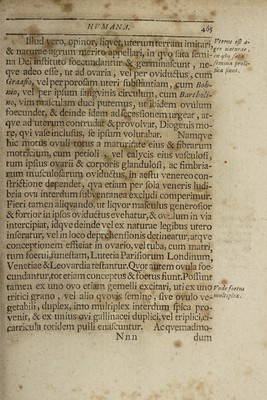 HUMANA. 465
Illud vero, opinor, liquet, uterum terram imitari,
& naturae agrum merito appellari, in quo sata semi-
na Dei instituto foecundantur & germinascunt, ne-
que adeo esse, ut ad ovaria, vel per oviductus, cum
Graafio, vel per porosam uteri substantiam, cum Boh-
nio, vel per ipsum sanguinis circulum, cum Bartholi-
no, vim masculam duci putemus, ut ibidem ovulum
foecundet, & deinde idem ad secessionem urgeat, at-
que ad uterum contrudat & provolvat, Diogenis mo-
re, qui vase inclusus, se ipsum volutabat. Namque
hic motus ovuli totus a maturitate eius & fibrarum
motricium, cum periodi, vel calycis eius vasculosi,
tum ipsius ovarii & corporis glandulosi, ac fimbria-
rum musculosarum oviductus, in aestu venereo con-
strictione dependet, qua etiam per sola veneris ludi-
bria ova interdum subventanea excludi comperimus.
Fieri tamen aliquando, ut liquor masculus generosior
& fortior in ipsos oviductus evehatur, & ovulum in via
intercipiat, idque deinde vel ex naturae legibus utero
inseratur, vel in loco deprehensionis detineatur, atque
conceptionem efficiat in ovario, vel tuba, cum matri,
tum foetui, funestam, Luteria Parisiorum Londinum,
Venetiae & Leovardia testantur. Quot autem ovula foe-
cundantur, tot etiam conceptus & foetus fiunt. Possunt
tamen ex uno ovo etiam gemelli excitari, uti ex uno
tritici grano, vel alio quovis semine, sive ovulo ve-
getabili, duplex, imo multiplex interdum spica pro-
venit, & ex unius ovi gallinacei duplici, vel triplici, ci-
catricula totidem pulli enascuntur. Ac quemadmo-
Nnn dum
Uterus est a-
ger naturae,
in quo sata
semina proli-
fica fiunt.
Unde foetus
multiplex.